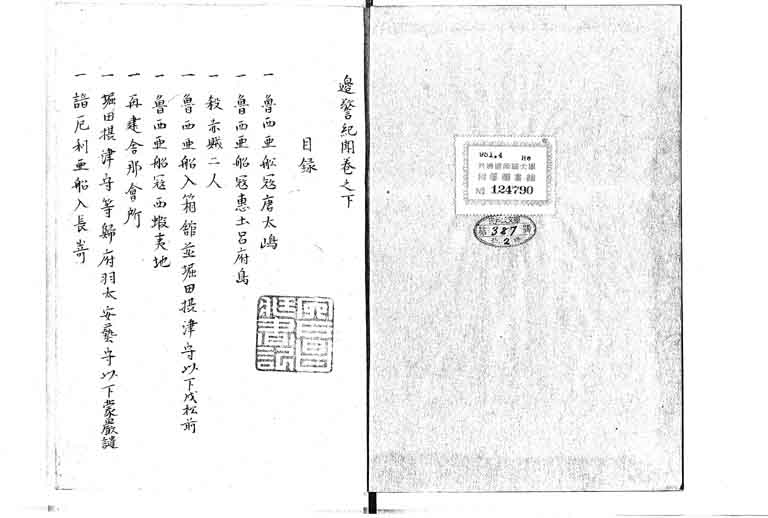 Vol.4 He
№ 124790
第 387 號
2
邉警紀聞巻之下
目録
一 魯西亜舩冦唐太嶋
一 魯西亜船冦惠土呂府島
一 殺赤賊二人
一 魯西亜船入箱舘並堀田摂津守以下戍松前
一 魯西亜船冦西蝦夷地
一 再建会所
一 堀田摂津守等歸府羽太安藝守以下蒙嚴譴
一 諳厄利亜船入長崎